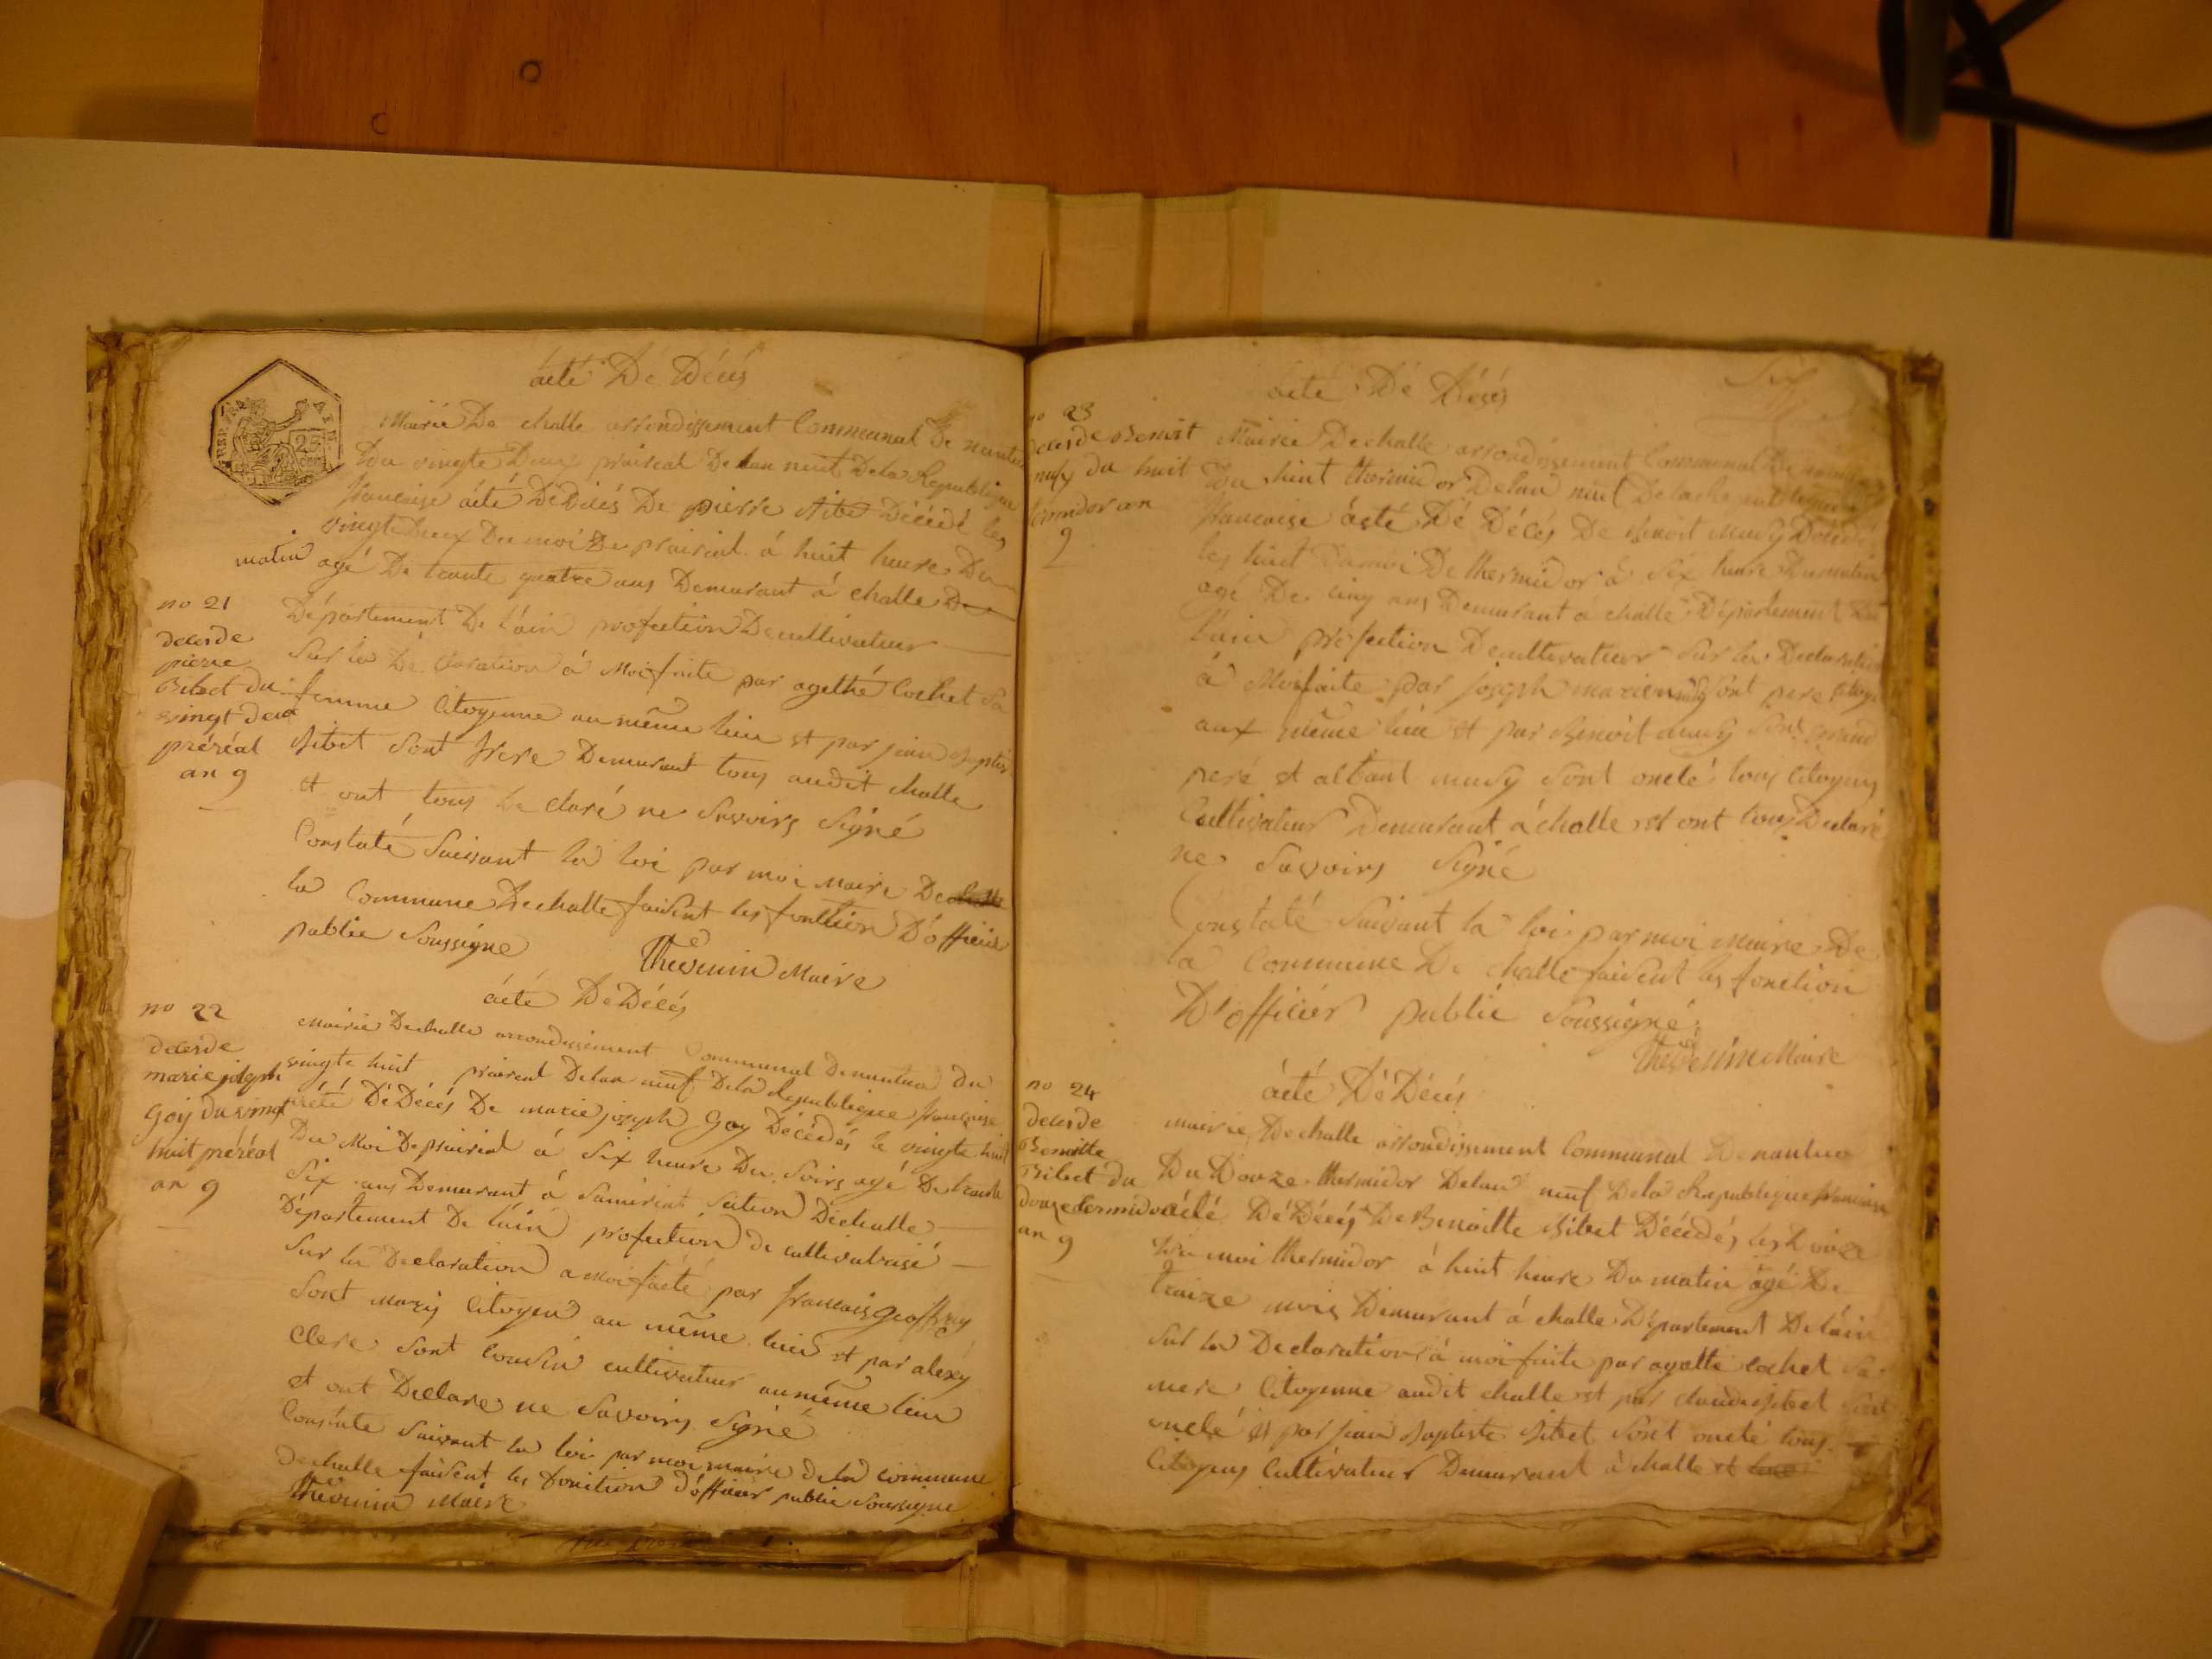 acté De Décés
Mairie De challe arrondissement Communal De nantua
Du vingte Deux prairéal De lan neuf De la Republique
francaise acté De Décés De pierre Bibet Décédé les
vingte deux Du moi De prairial à huit heure Du
matin agé De trante quatre ans Demurant à challe
Département De l'ain profection De cultivateur
Sur la Déclaration à Moi faite par agathé Cochet Sa
femme Citoyenne au même lieu et par jean Baptiste
Bibet Sont frere Demurant tous audit challe
et ont tous De claré ne Savoirs Signé
Constaté Suivant la loi par moi Maire De
la Commune De challe faisent les fonction D'officié
public Soussigné
Thevenin Maire
no 21
deces de
pierre
Bibet du
vingt deux
préréal
an 9
acté De Décés
Mairie De challe arrondissement Communal De nantua Du
vingte huit praireal De lan neuf De la Republique francaise
acté De Décés De marie joseph Goy Décédés le vingte huit
Du Moi De prairial à Six heure Du Soirs agé De trante
Six ans Demurant à Section De challe
Département De l'ain profection de cultivatrisé
Sur la Declaration a Moi faité par francois Geoffray
Sont Mariy Citoyen au même lieu et par alexy
Clere Sont Cousin cultivateur au même lieu
et ont Declare ne Savoirs Signé
Constaté Suivant la loi par moi maire de la commune
De challe faisent les fonction d'officier public Soussigné
Thevenin Maire
no 22
deces de
marie joseph
Goy du vingt
huit préréal
an 9
acté De Décés
no 23
deces de Benoit
musy du huit
termidor an
9
Mairie De challe arrondissement Communal De nantua
Du huit thermidor De lan neuf De la Republique
francaise acté De Décés De Benoit Musy Décédé
les huit Du moi De thermidor à Six heure Du matin
agé De cinq ans Demurant a challe Département De
l'ain profection De cultivateur Sur la Declaration
à Moi faite par joseph marien musy Sont pere Citoyen
aux même lieu et par Benoit musy Sont grand
peré et alban musy Sont onclé tous Citoyens
Cultivateur Demurant à challe et ont tous Declaré
ne Savoirs Signé
Constaté Suivant la loi par moi Maire De
la Commune De challe faisent les fonction
D'officier public Soussigné
Thevenin Maire
acté De Décés
no 24
deces de
Benoitte
Bibet du
douze termidor
an 9
mairie De challe arrondissement Communal De nantua
Du Douze thermidor De lan neuf De la Republique francaise
acté De Décés De Benoitte Bibet Décédés les Douze
Du moi thermidor à huit heure Du matin agé De
traize mois Demurant à challe Département De l'ain
Sur la Declaration à moi faite par agatte cochet Sa
mere Citoyenne audit challe et par claude Bibet Sont
onclé et par jean Baptiste Bibet Sont onclé tous
Citoyens Cultivateur Demurant à challe et